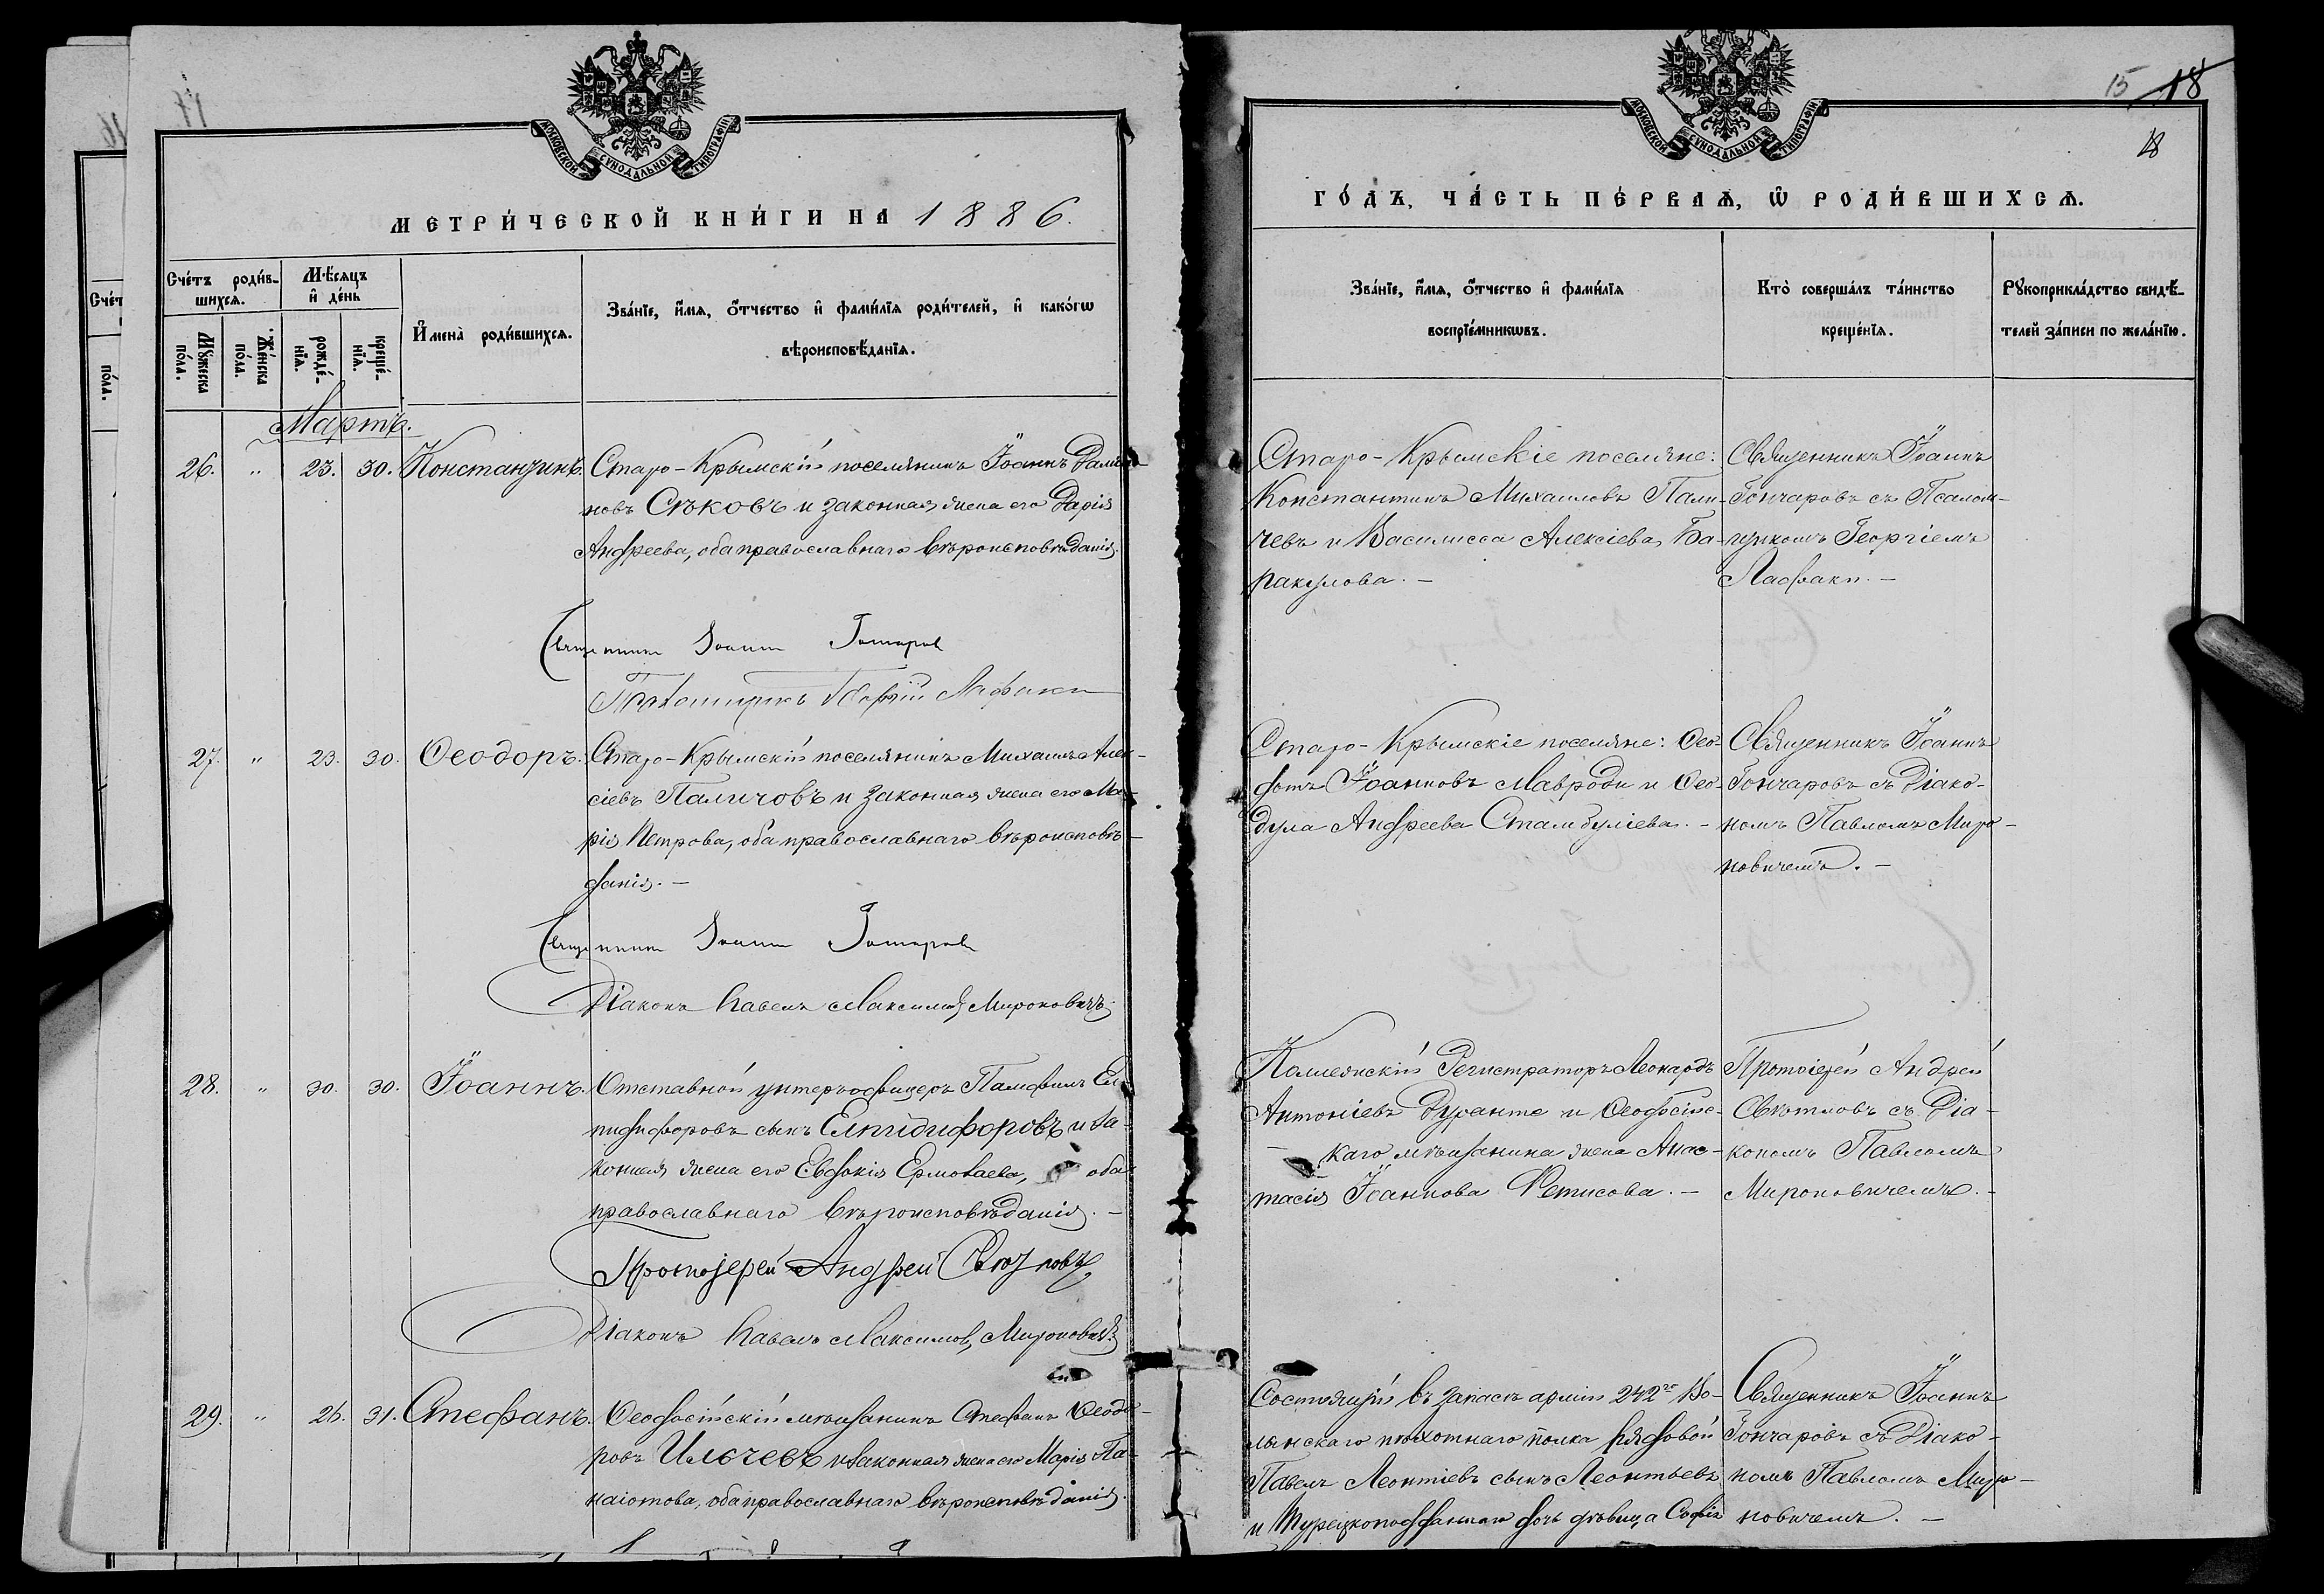 МОСКОВСКОЙ СѴНОДАЛЬНОЙ ТИПОГРАФІИ
МЕТРИ́ЧЕСКОЙ КНИ́ГИ НА 1886.
Сче́тъ роди́в-
шихся.
Мѣ́сяцъ
и҆ де́нь
Мꙋ́жеска
по́ла.
Же́нска
по́ла.
рожде́-
нїѧ.
креще́-
нїѧ.
И҆мена̀ роди́вшихсѧ.
Зва́нїе, и҆́мѧ, ѻ҆́тчество и҆ фами́лїѧ роди́телей, и҆ како́гѡ
вѣроисповѣ́данїѧ.
Мартъ.
26. " 23. 30. Константинъ. Старо-Крымскій поселянинъ Іоаннъ Дамиа-
новъ Сѣковъ и законная жена его Дарія
Андреева, оба православнаго вѣроисповѣданія.
Священникъ Іоаннъ Гончаровъ
Псаломщикъ Георгій Лафаки
27. " 23. 30. Ѳеодоръ. Старо-Крымскій поселянинъ Михаилъ Алек-
сіевъ Паличовъ и законная жена его Ма-
рія Петрова, оба православнаго вѣроисповѣ-
данія. —
Священникъ Іоаннъ Гончаровъ
Діаконъ Павелъ Максимовъ Мироновичъ
28. " 30. 30. Іоаннъ. Отставной унтеръ-офицеръ Памфилъ Ел-
пидифоровъ сынъ Елпидифоровъ и за-
конная жена его Евдокія Ермолаева, оба
православнаго вѣроисповѣданія. —
Протоіерей Андрей
Діаконъ Павелъ Максимовъ Мироновичъ
29. " 26. 31. Стефанъ. Ѳеодосійскій мѣщанинъ Стефанъ Ѳеодо-
ровъ Ильчевъ и законная жена его Марія Па-
наіотова, оба православнаго вѣроисповѣданія.
МОСКОВСКОЙ СѴНОДАЛЬНОЙ ТИПОГРАФІИ
15 18
18
ГО́ДЪ, ЧА́СТЬ ПЕ́РВАѦ, Ѡ҆ РОДИ́ВШИХСѦ.
Зва́нїе, и҆́мѧ, ѻ҆́тчество и҆ фами́лїѧ
воспрїе́мникѡвъ.
Кто̀ соверша́лъ та́инство
креще́нїѧ.
Рꙋкоприкла́дство свидѣ́-
телей за́писи по жела́нїю.
Старо-Крымскіе поселяне:
Константинъ Михаиловъ Пали-
чевъ и Василисса Алексіева Ба-
ракулова. —
Священникъ Іоаннъ
Гончаровъ съ Псалом-
щикомъ Георгіемъ
Лафаки. —
Старо-Крымскіе поселяне: Ѳео-
дотъ Іоанновъ Мавроди и Ѳео-
дула Андреева Стамбуліева. —
Священникъ Іоаннъ
Гончаровъ съ Діако-
номъ Павломъ Миро-
новичемъ. —
Коллежскій Регистраторъ Леонардъ
Антоніевъ Дуранте и Ѳеодосійс-
каго мѣщанина жена Анас-
тасія Іоаннова Фетисова. —
Протоіерей Андрей
съ Діа-
кономъ Павломъ
Мироновичемъ. —
Состоящій въ запасѣ арміи 242го Бо-
лянскаго пѣхотнаго полка рядовой
Павелъ Леонтіевъ сынъ Леонтьевъ
и Турецкоподданнаго дочь дѣвица Софія
Священникъ Іоаннъ
Гончаровъ съ Діако-
номъ Павломъ Миро-
новичемъ. —